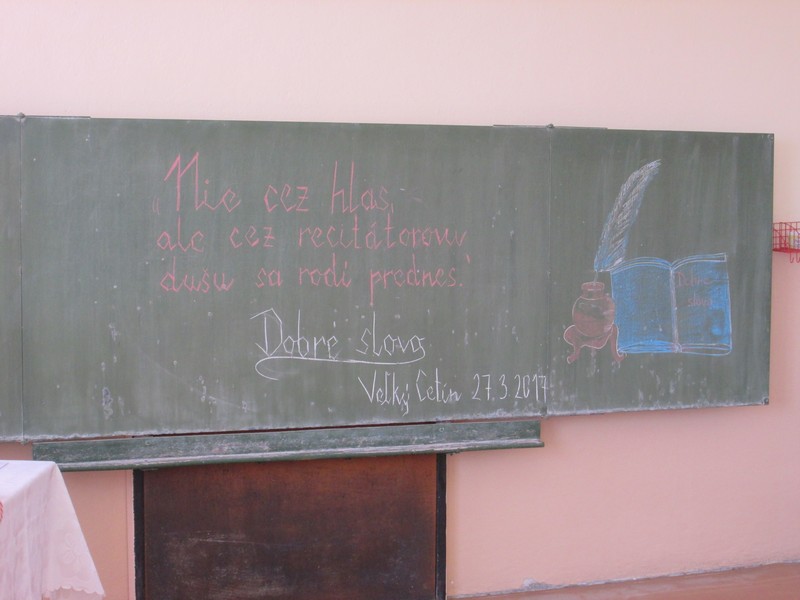 „Nie cez hlas,
ale cez recitátorovu
dušu sa rodí prednes."
Dobré slovo
Veľký Cetín 27.3.2017
Dobré
slovo